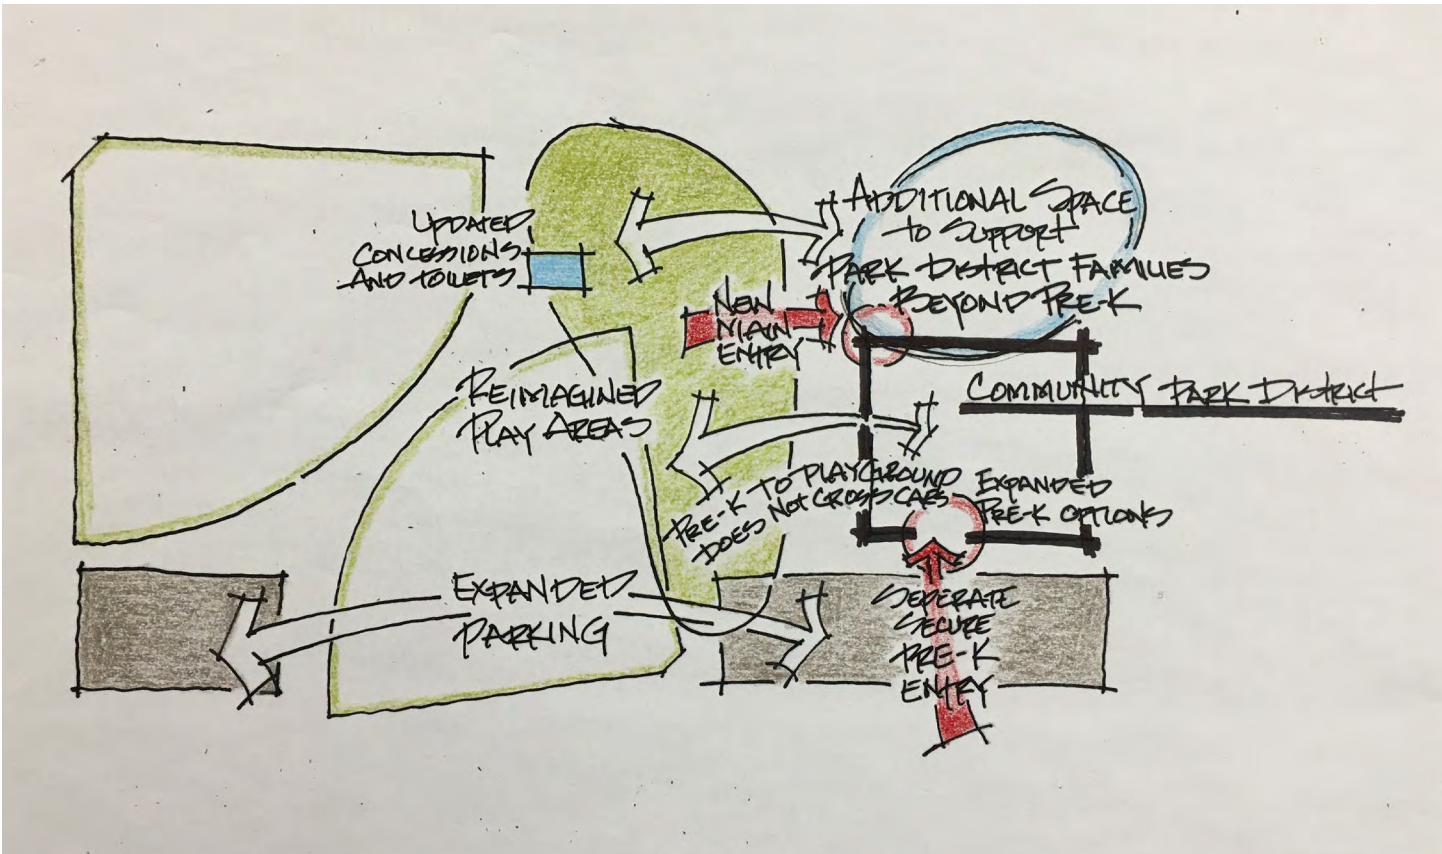 UPDATED
CONCESSIONS
AND TOILETS
ADDITIONAL SPACE
TO SUPPORT
PARK DISTRICT FAMILIES
BEYOND PRE-K
NEW
MAIN
ENTRY
REIMAGINED
PLAY AREAS
COMMUNITY PARK DISTRICT
PRE-K TO PLAYGROUND
DOES NOT CROSS CARS
EXPANDED
PRE-K OPTIONS
EXPANDED
PARKING
SEPERATE
SECURE
PRE-K
ENTRY